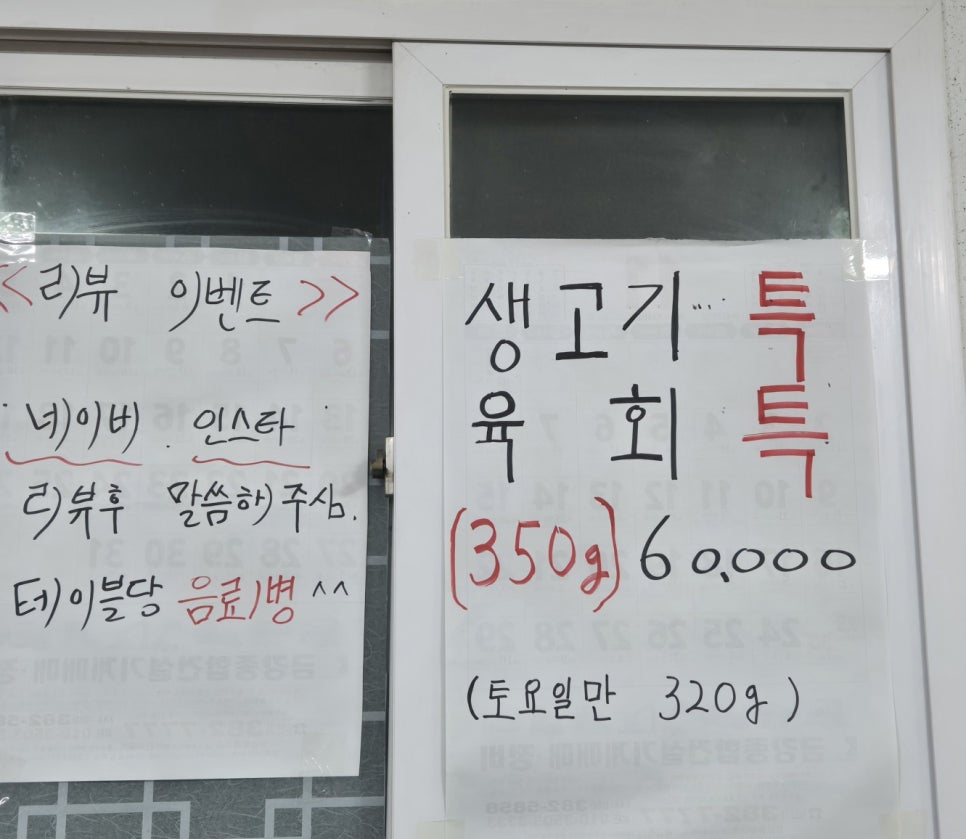 << 리뷰 이벤트 >>
네이버 . 인스타
리뷰후 말씀하주심.
테이블당 음료1병 ^^
생고기... 특
육회 특
(350g) 60,000
(토요일만 320g)